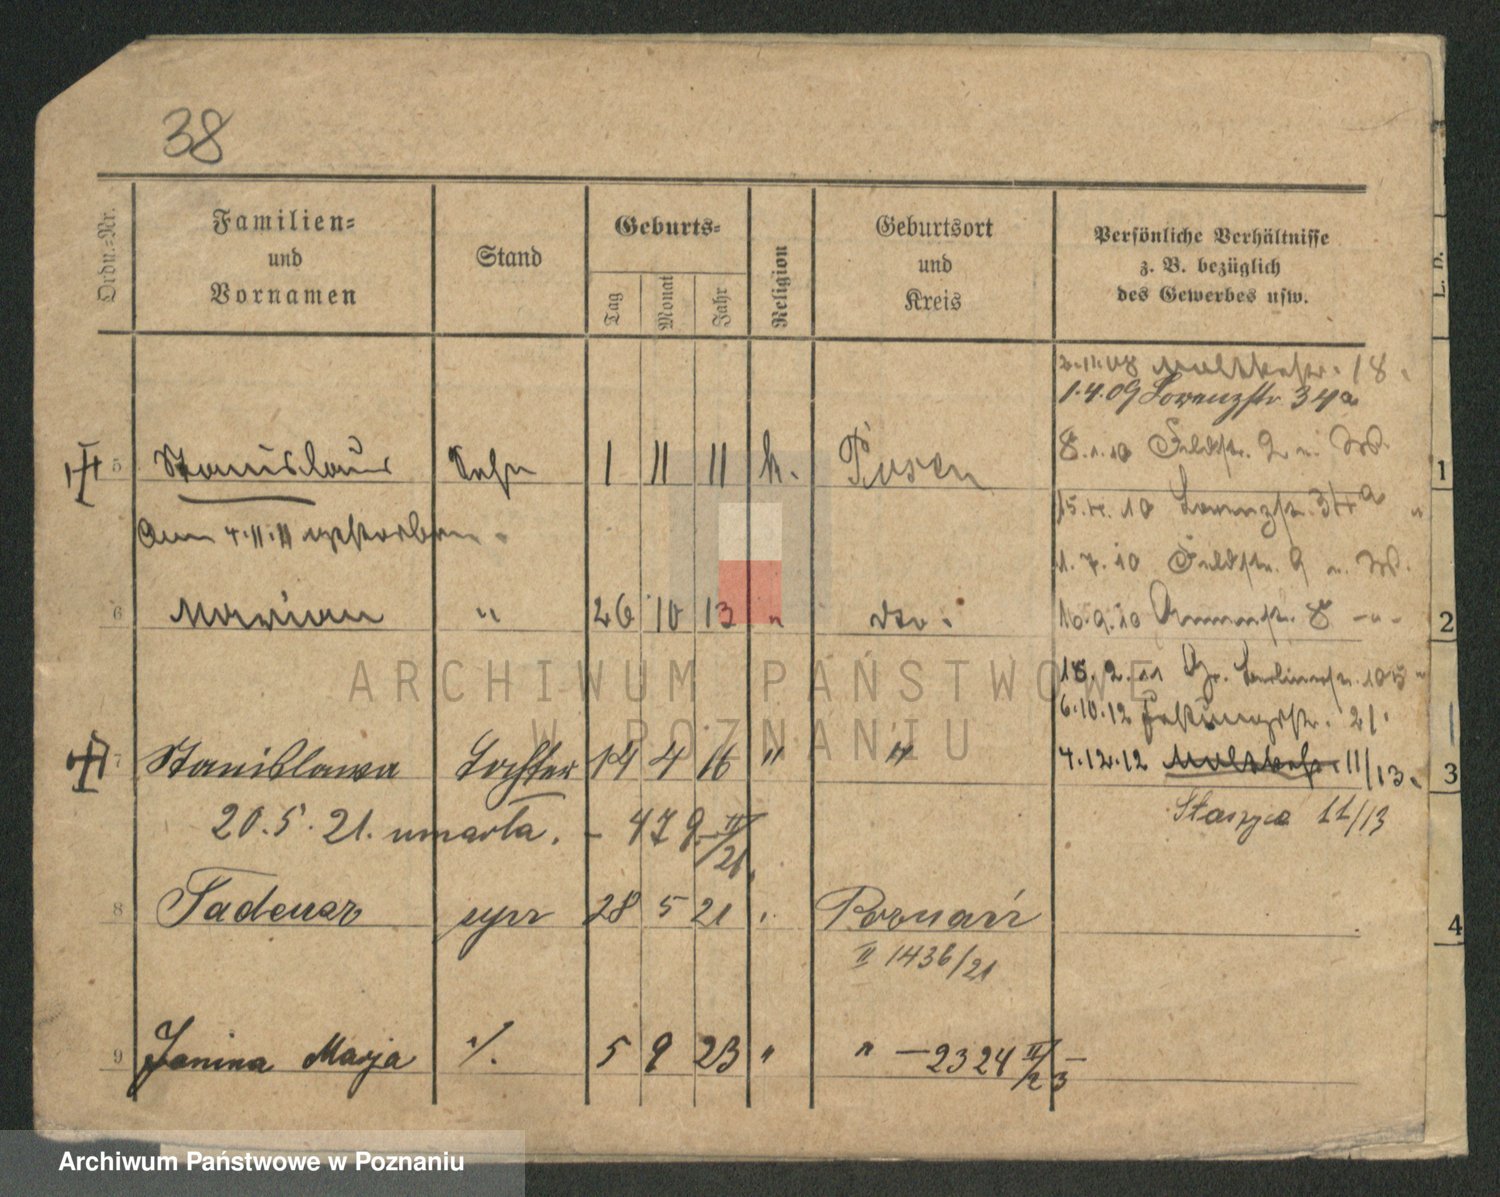 38
Ordn.-Nr.
Familien-
und
Vornamen
Stand
Geburts-
Tag
Monat
Jahr
Religion
Geburtsort
und
Kreis
Persönliche Verhältnisse
z. B. bezüglich
des Gewerbes usw.
2.11.08 Moltkestr. 18.
1.4.09 Lorenzstr. 34a
8.1.10 Feldstr. 9 u. W.
5 Stanislaus Sohn 1 11 11 k. Posen 1
15.4.10 Lorenzstr. 34a "
Am 4.11.11 gestorben.
1.7.10 Feldstr. 9 u. W.
6 Marian " 26 10 13 " dto. 2
10.9.10 8 - " -
18.2.11 Gr. Berlinerstr. 105 "
6.10.12 Festungsstr. 21.
7 Stanislawa Tochter 14 4 16 " " 4.12.12 Moltkestr. 11/13. 3
20.5.21. umarła. - 479 II/21. Staszyca 11/13
8 Tadeusz syn 28 5 21 . Poznań 4
II 1436/21
9 Janina Marja ./. 5 9 23 " " - 2324 II/23 -
ARCHIWUM PAŃSTWOWE
W POZNANIU
Archiwum Państwowe w Poznaniu